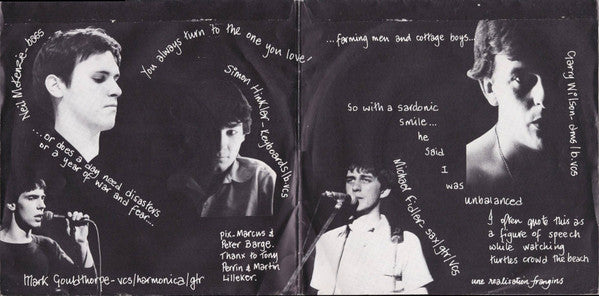 Neil McKenzie - bass
You always turn to the one you love!
Simon Hinkler - keyboards/b.vcs
...or does a day need disasters
or a year of war and fear...
Mark Gouldthorpe - vcs/harmonica/gtr
pix. Marcus &
Peter Barge.
Thanx to Tony
Perrin & Martin
Lilleker.
...farming men and cottage boys...
Garry Wilson - dms/b.vcs
So with a sardonic
smile...
he
said
I
was
unbalanced
Michael Fidler - sax/gtr/vcs
I often quote this as
a figure of speech
while watching
turtles crowd the beach
une realisation-frangins